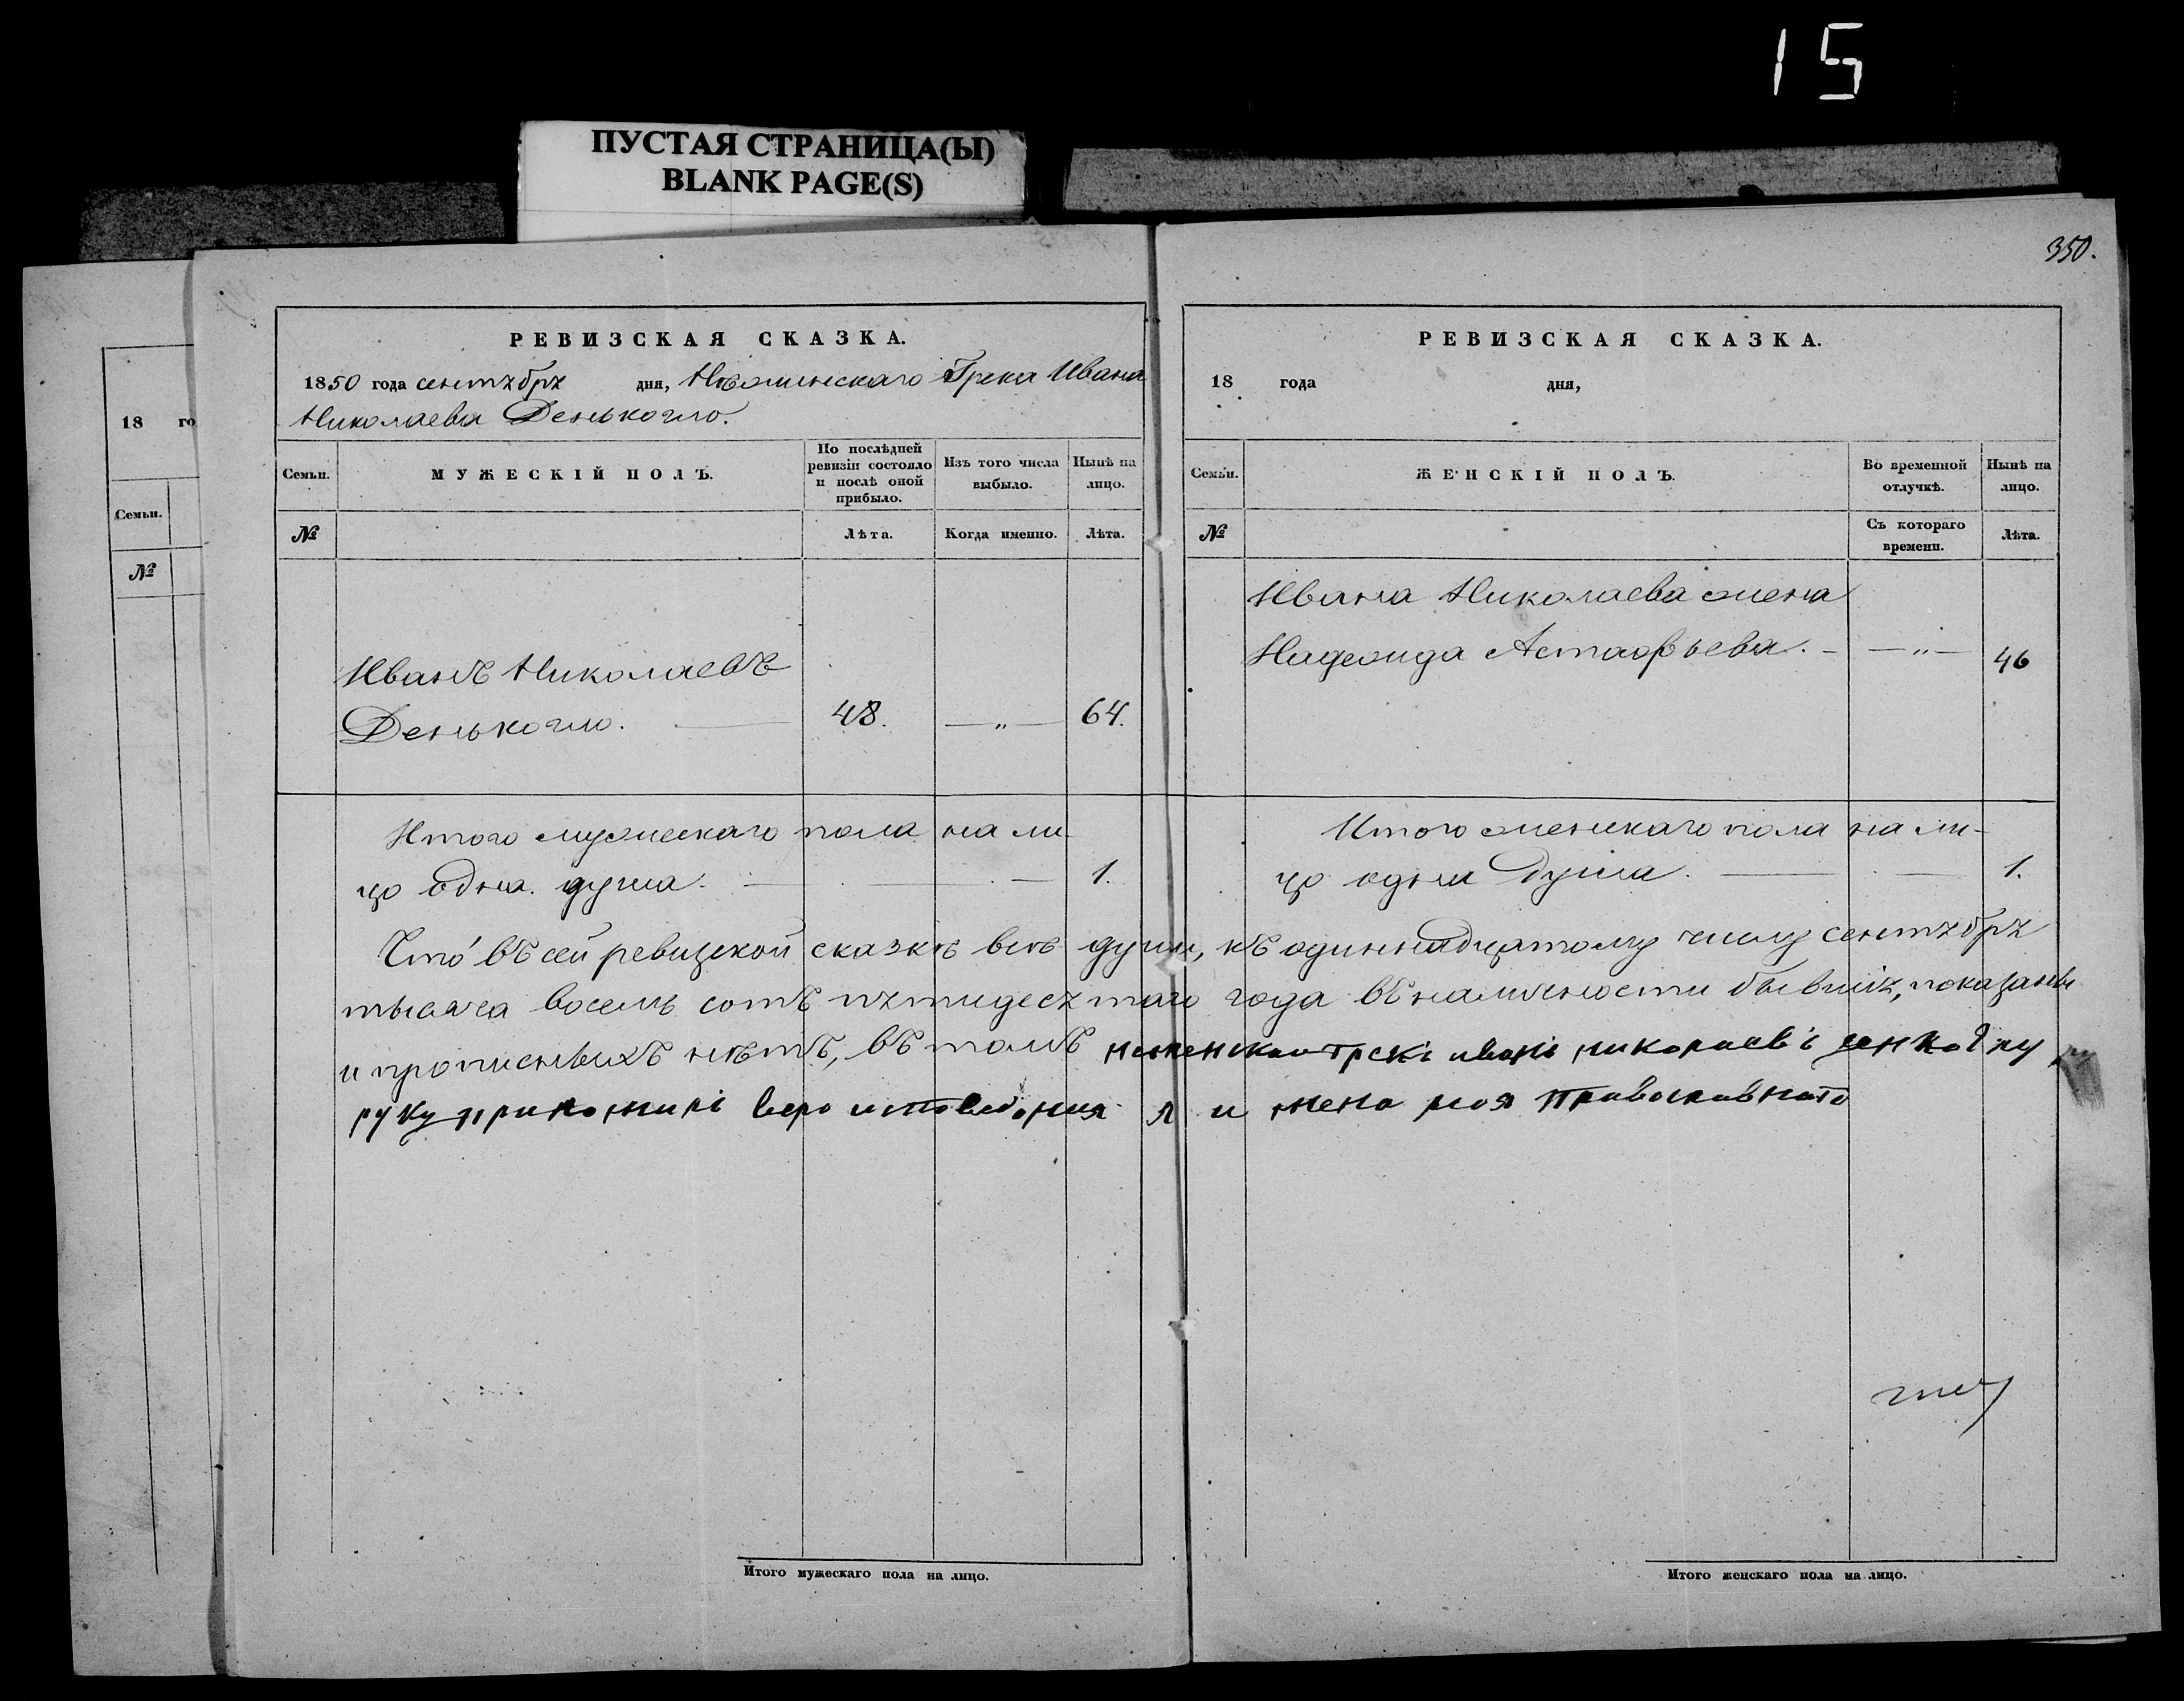 15
ПУСТАЯ СТРАНИЦА(Ы)
BLANK PAGE(S)
350.
18 го
Семьи.
№
РЕВИЗСКАЯ СКАЗКА.
1850 года сентября дня, Нѣжинскаго Грека Ивана
Николаева Денькогло.
Семьи. МУЖЕСКІЙ ПОЛЪ. По послѣдней ревизіи состояло и послѣ оной прибыло. Изъ того числа выбыло. Нынѣ на лицо.
№ Лѣта. Когда именно. Лѣта.
Иванъ Николаевъ
Денькогло. 48. — „ — 64.
Итого мужескаго пола на ли-
цо одна душа. 1.
РЕВИЗСКАЯ СКАЗКА.
18 года дня,
Семьи. ЖЕНСКІЙ ПОЛЪ. Во временной отлучкѣ. Нынѣ на лицо.
№ Съ котораго времени. Лѣта.
Ивана Николаева жена
Надежда Астафьева. — „ — 46
Итого женскаго пола на ли-
цо одна душа. 1.
Что въ сей ревизской сказкѣ всѣ души, къ одиннадцатому числу сентября
тысяча восемь сотъ пятидесятаго года въ наличности бывшія, показаны
и прописныхъ нѣтъ, въ томъ неженскои грекі івані николаеві денкоглу
руку приложилі веро исповедания я и жена моя православнато
Итого мужескаго пола на лицо.
Итого женскаго пола на лицо.